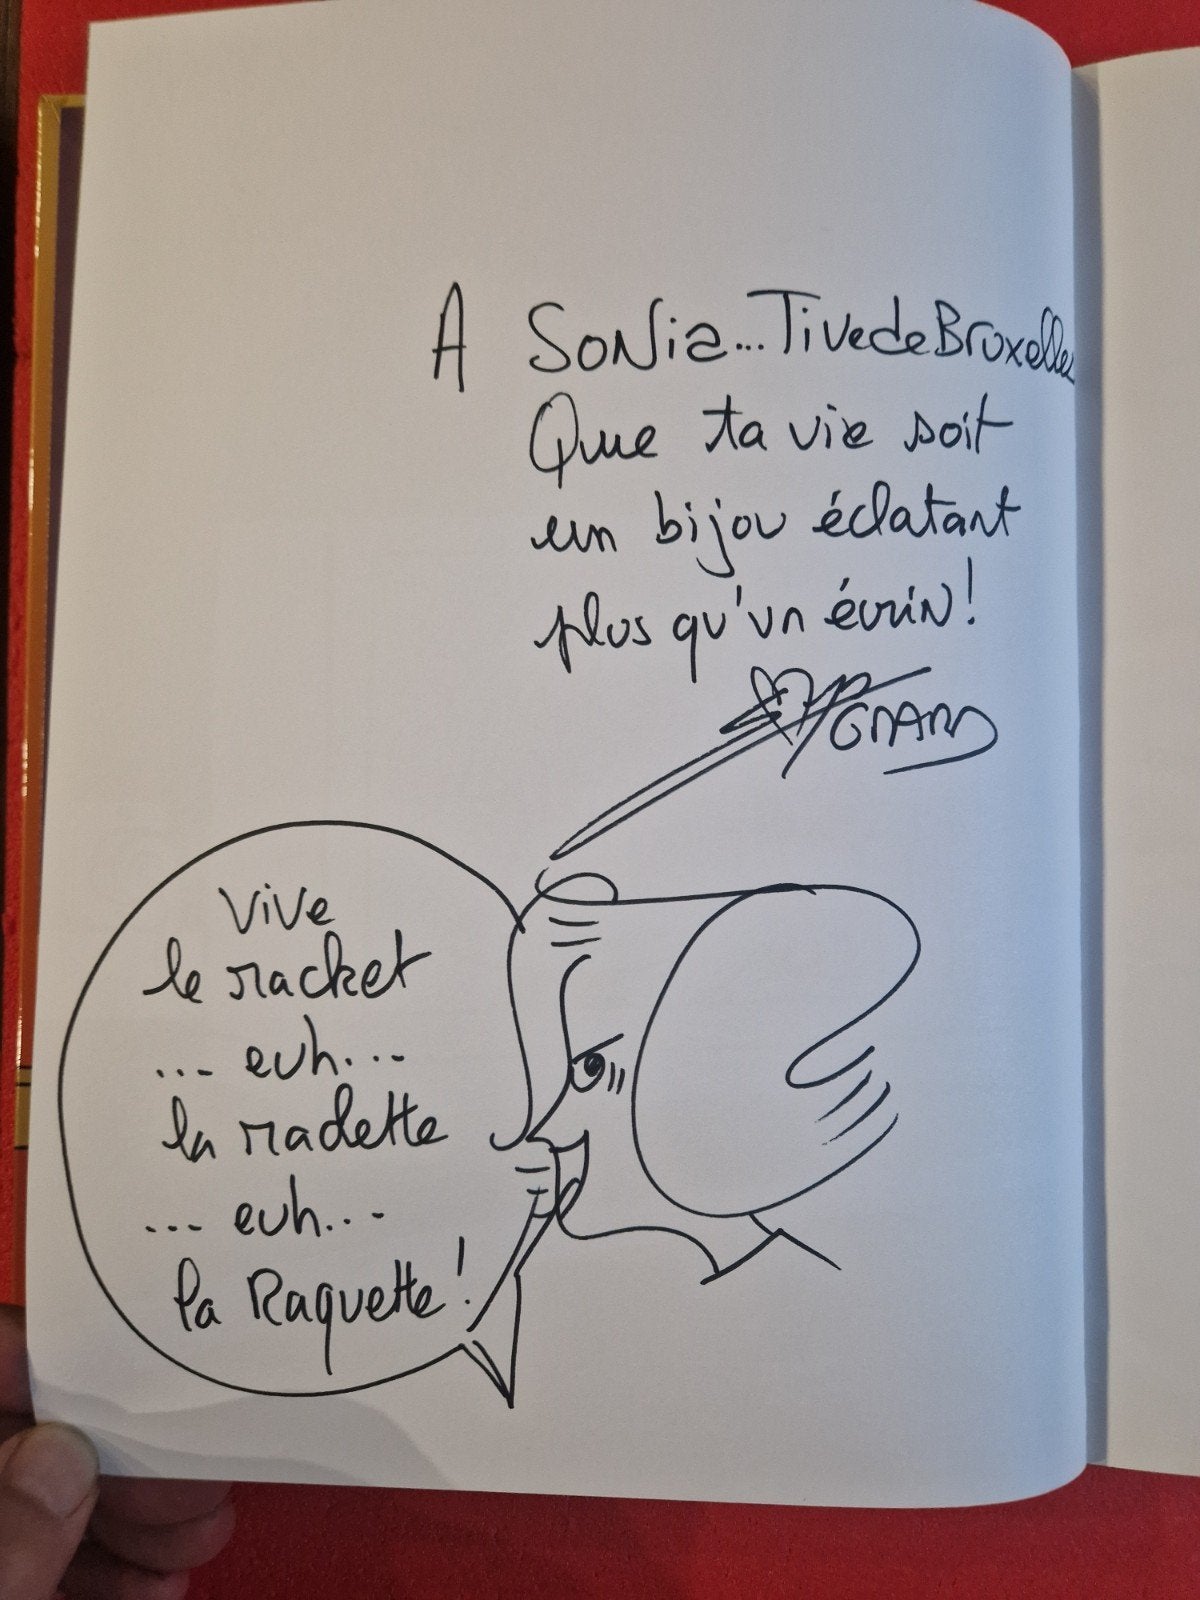 A SoNia...TivedeBruxelles
Que ta vie soit
un bijou éclatant
plus qu'un écrin!
vive
le racket
... euh...
la radette
... euh...
la Raquette!